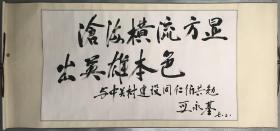 沧海横流方显
出英雄本色
与中关村建设同仁们共勉